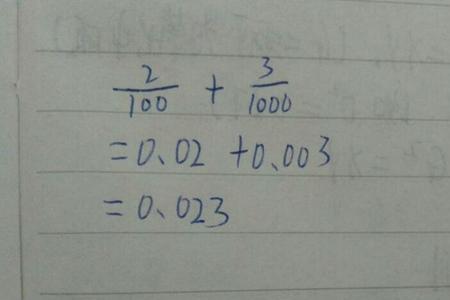 2/100 + 3/1000
=0.02 +0.003
=0.023